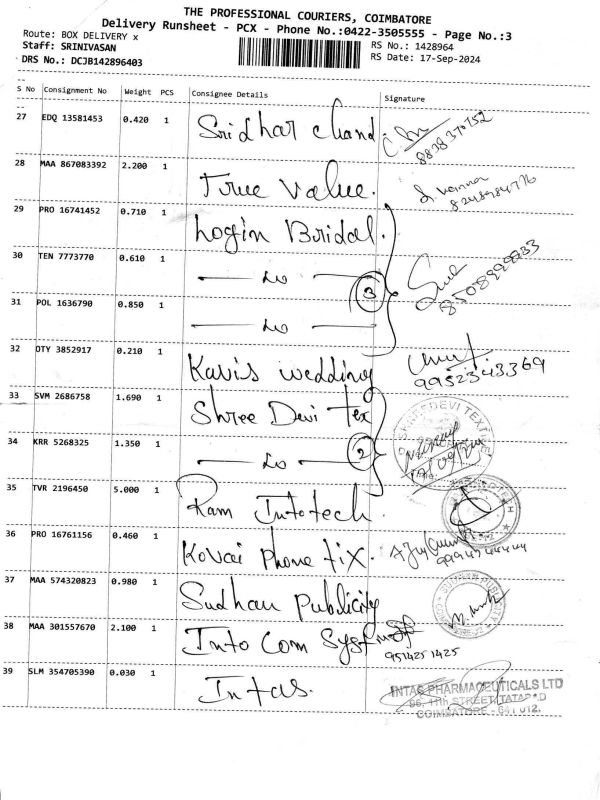 THE PROFESSIONAL COURIERS, COIMBATORE
Delivery Runsheet - PCX - Phone No.:0422-3505555 - Page No.:3
Route: BOX DELIVERY x
Staff: SRINIVASAN
RS No.: 1428964
DRS No.: DCJB142896403
RS Date: 17-Sep-2024
S No Consignment No Weight PCS Consignee Details Signature
27 EDQ 13581453 0.420 1 Sridhar chand 8838370752
28 MAA 867083392 2.200 1 True value.
29 PRO 16741452 0.710 1 Login Bridal.
30 TEN 7773770 0.610 1 — Do — 3
31 POL 1636790 0.850 1 — Do —
32 OTY 3852917 0.210 1 Kavis wedding 9952343369
33 SVM 2686758 1.690 1 Shree Devi Tex
34 KRR 5268325 1.350 1 — Do — 2
35 TVR 2196450 5.000 1 Ram Infotech.
36 PRO 16761156 0.460 1 Kovai Phone fix.
37 MAA 574320823 0.980 1 Sudhan Publicity
38 MAA 301557670 2.100 1 Info Com System 9514251425
39 SLM 354705390 0.030 1 Intas.
INTAS PHARMACEUTICALS LTD
96, 11th STREET, TATABAD
COIMBATORE - 641 012.